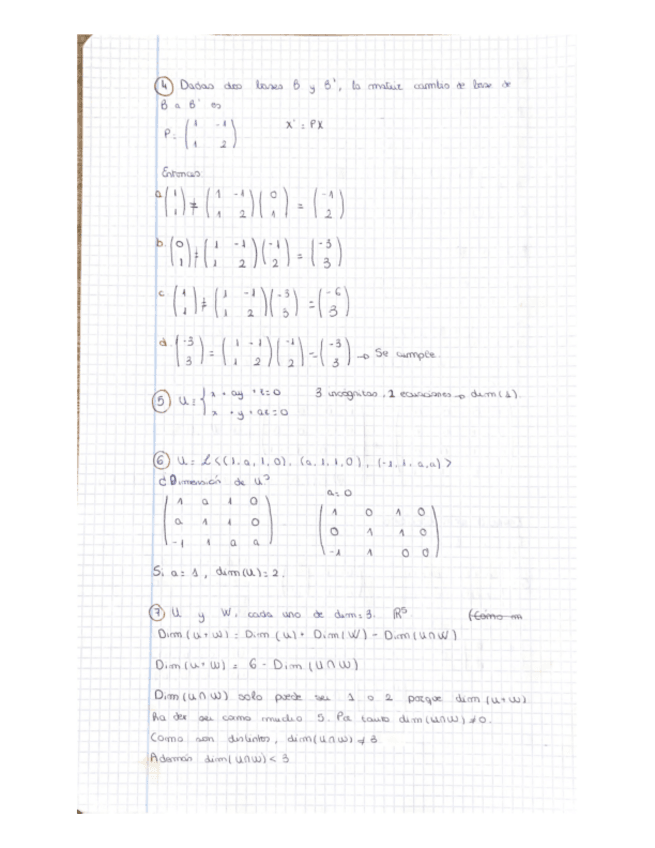 4 Dadas dos bases B y B', la matriz cambio de base de
B a B' es
P = ( 1 -1 ; 1 2 ) X' = PX
Entonces
a. ( 1 ; 1 ) ≠ ( 1 -1 ; 1 2 ) ( 0 ; 1 ) = ( -1 ; 2 )
b. ( 0 ; 1 ) ≠ ( 1 -1 ; 1 2 ) ( -1 ; 2 ) = ( -3 ; 3 )
c ( 1 ; 1 ) ≠ ( 1 -1 ; 1 2 ) ( -3 ; 3 ) = ( -6 ; 3 )
d. ( -3 ; 3 ) = ( 1 -1 ; 1 2 ) ( -1 ; 2 ) = ( -3 ; 3 ) → Se cumple
5 U = { x + ay + z = 0 3 incógnitas, 2 ecuaciones → dim(1)
x + y + az = 0
6 U = L<(1, a, 1, 0), (a, 1, 1, 0), (-1, 1, a, a)>
¿Dimensión de U?
a = 0
( 1 a 1 0 ; a 1 1 0 ; -1 1 a a ) ( 1 0 1 0 ; 0 1 1 0 ; -1 1 0 0 )
Si a = 1, dim(U) = 2.
7 U y W, cada uno de dim = 3. R⁵ (Como
Dim(U+W) = Dim(U) + Dim(W) - Dim(U∩W)
Dim(U+W) = 6 - Dim(U∩W)
Dim(U∩W) solo puede ser 1 o 2 porque dim(U+W)
ser como mucho 5. Por tanto dim(U∩W) ≠ 0.
Como son distintos, dim(U∩W) ≠ 3
Además dim(U∩W) < 3